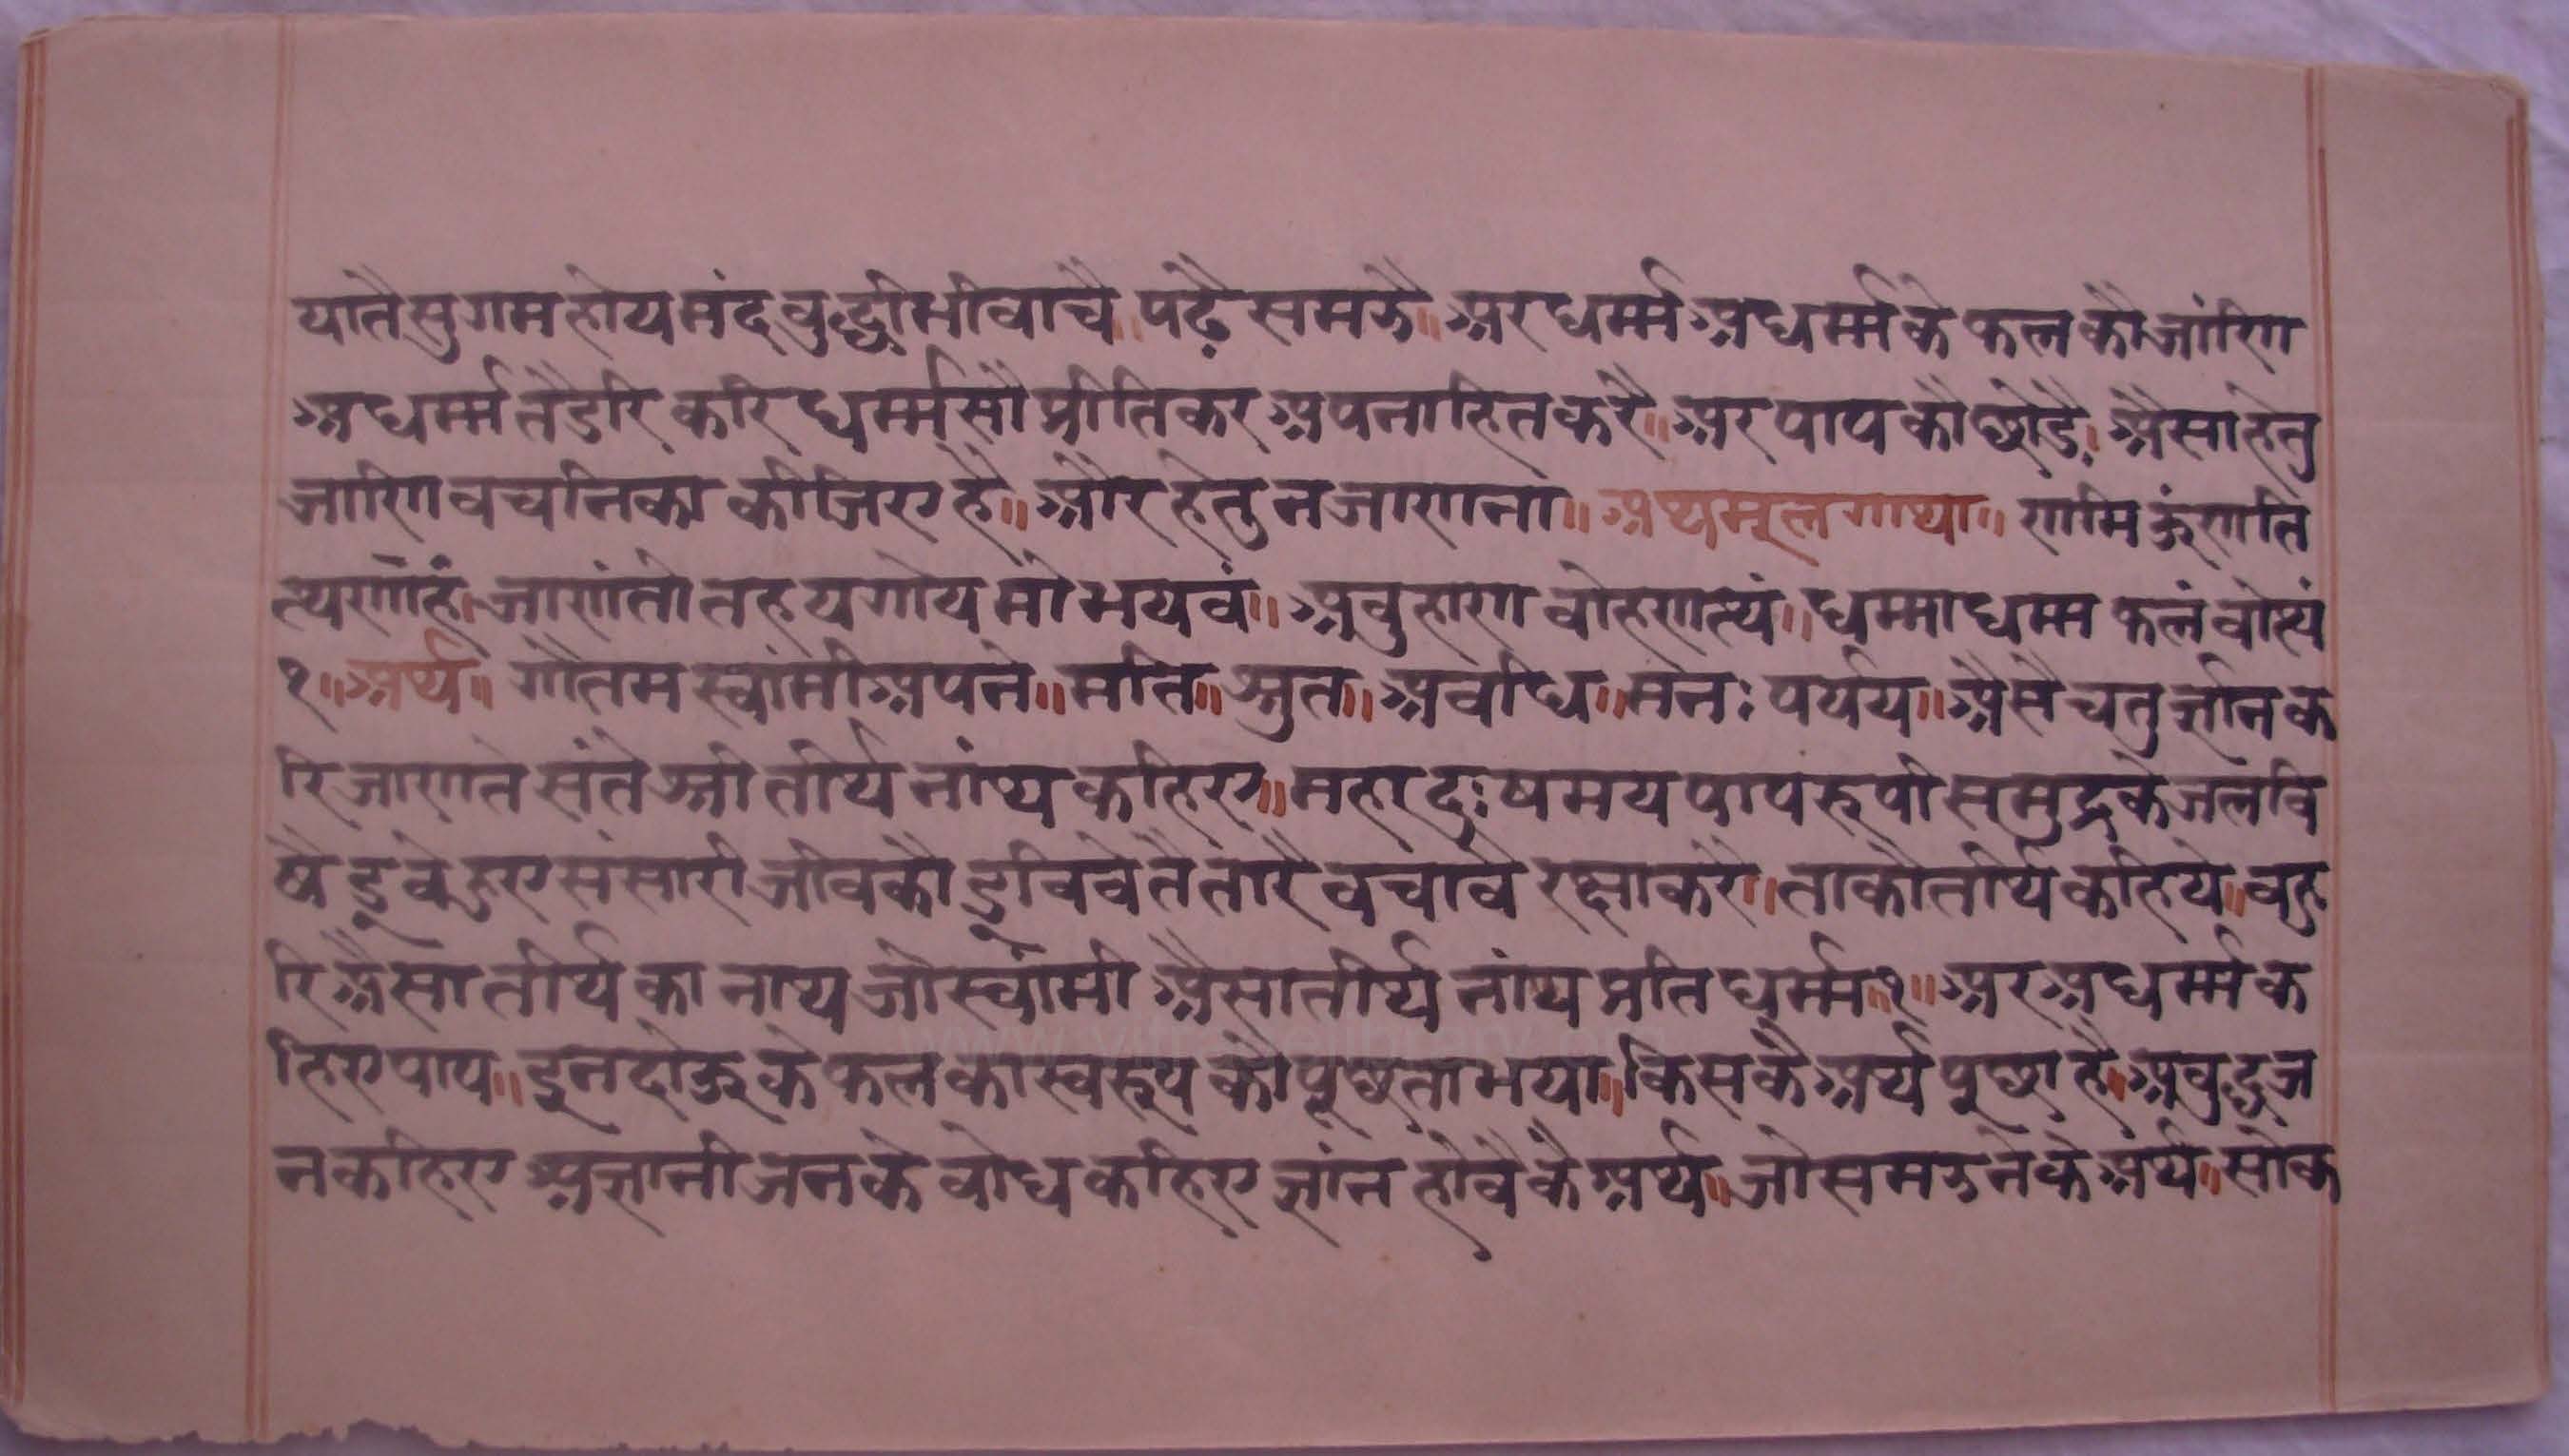 यातैसुगमहोयमंदवुद्धीभीवाचै॥पढ़ैसमझै॥अरधर्म्मअधर्म्मकेफलकौजांणि
अधर्म्मतैडरिकरिधर्म्मसौप्रीतिकरअपनाहितकरै॥अरपापकौछोडै॥अैसाहेतु
जाणिवचनिकाकीजिएहै॥औरहेतुनजाणना॥अथमूलगाथा॥णमिऊंणति
त्थणाहं॥जाणंतोतहयगोयमोभयवं॥अवुहाणवोहणत्थं॥धम्माधम्मफलंवोत्थं
१॥अर्थ॥गौतमस्वांमीअपने॥मति॥श्रुत॥अवधि॥मनःपर्यय॥अैसैचतुर्ज्ञानक
रिजाणतेसंतेश्रीतीर्थनांथकहिए॥महादुःषमयपापरूपीसमुद्रकेजलवि
षैडूवेहुएसंसारीजीवकौडूविवेतैतारैवचावेरक्षाकरै॥ताकौतीर्थकहिये॥वहु
रिअैसातीर्थकानाथजोस्वांमीअैसातीर्थनांथप्रतिधर्म्म१॥अरअधर्म्मक
हिएपाप॥इनदोऊकेफलकास्वरूपकौपूछताभया॥किसकैअर्थपूछाहै॥अवुद्धज
नकहिएअज्ञानीजनकेवोधकहिएज्ञांनहोवेकैअर्थ॥जोसमझनेकेअर्थ॥सोक